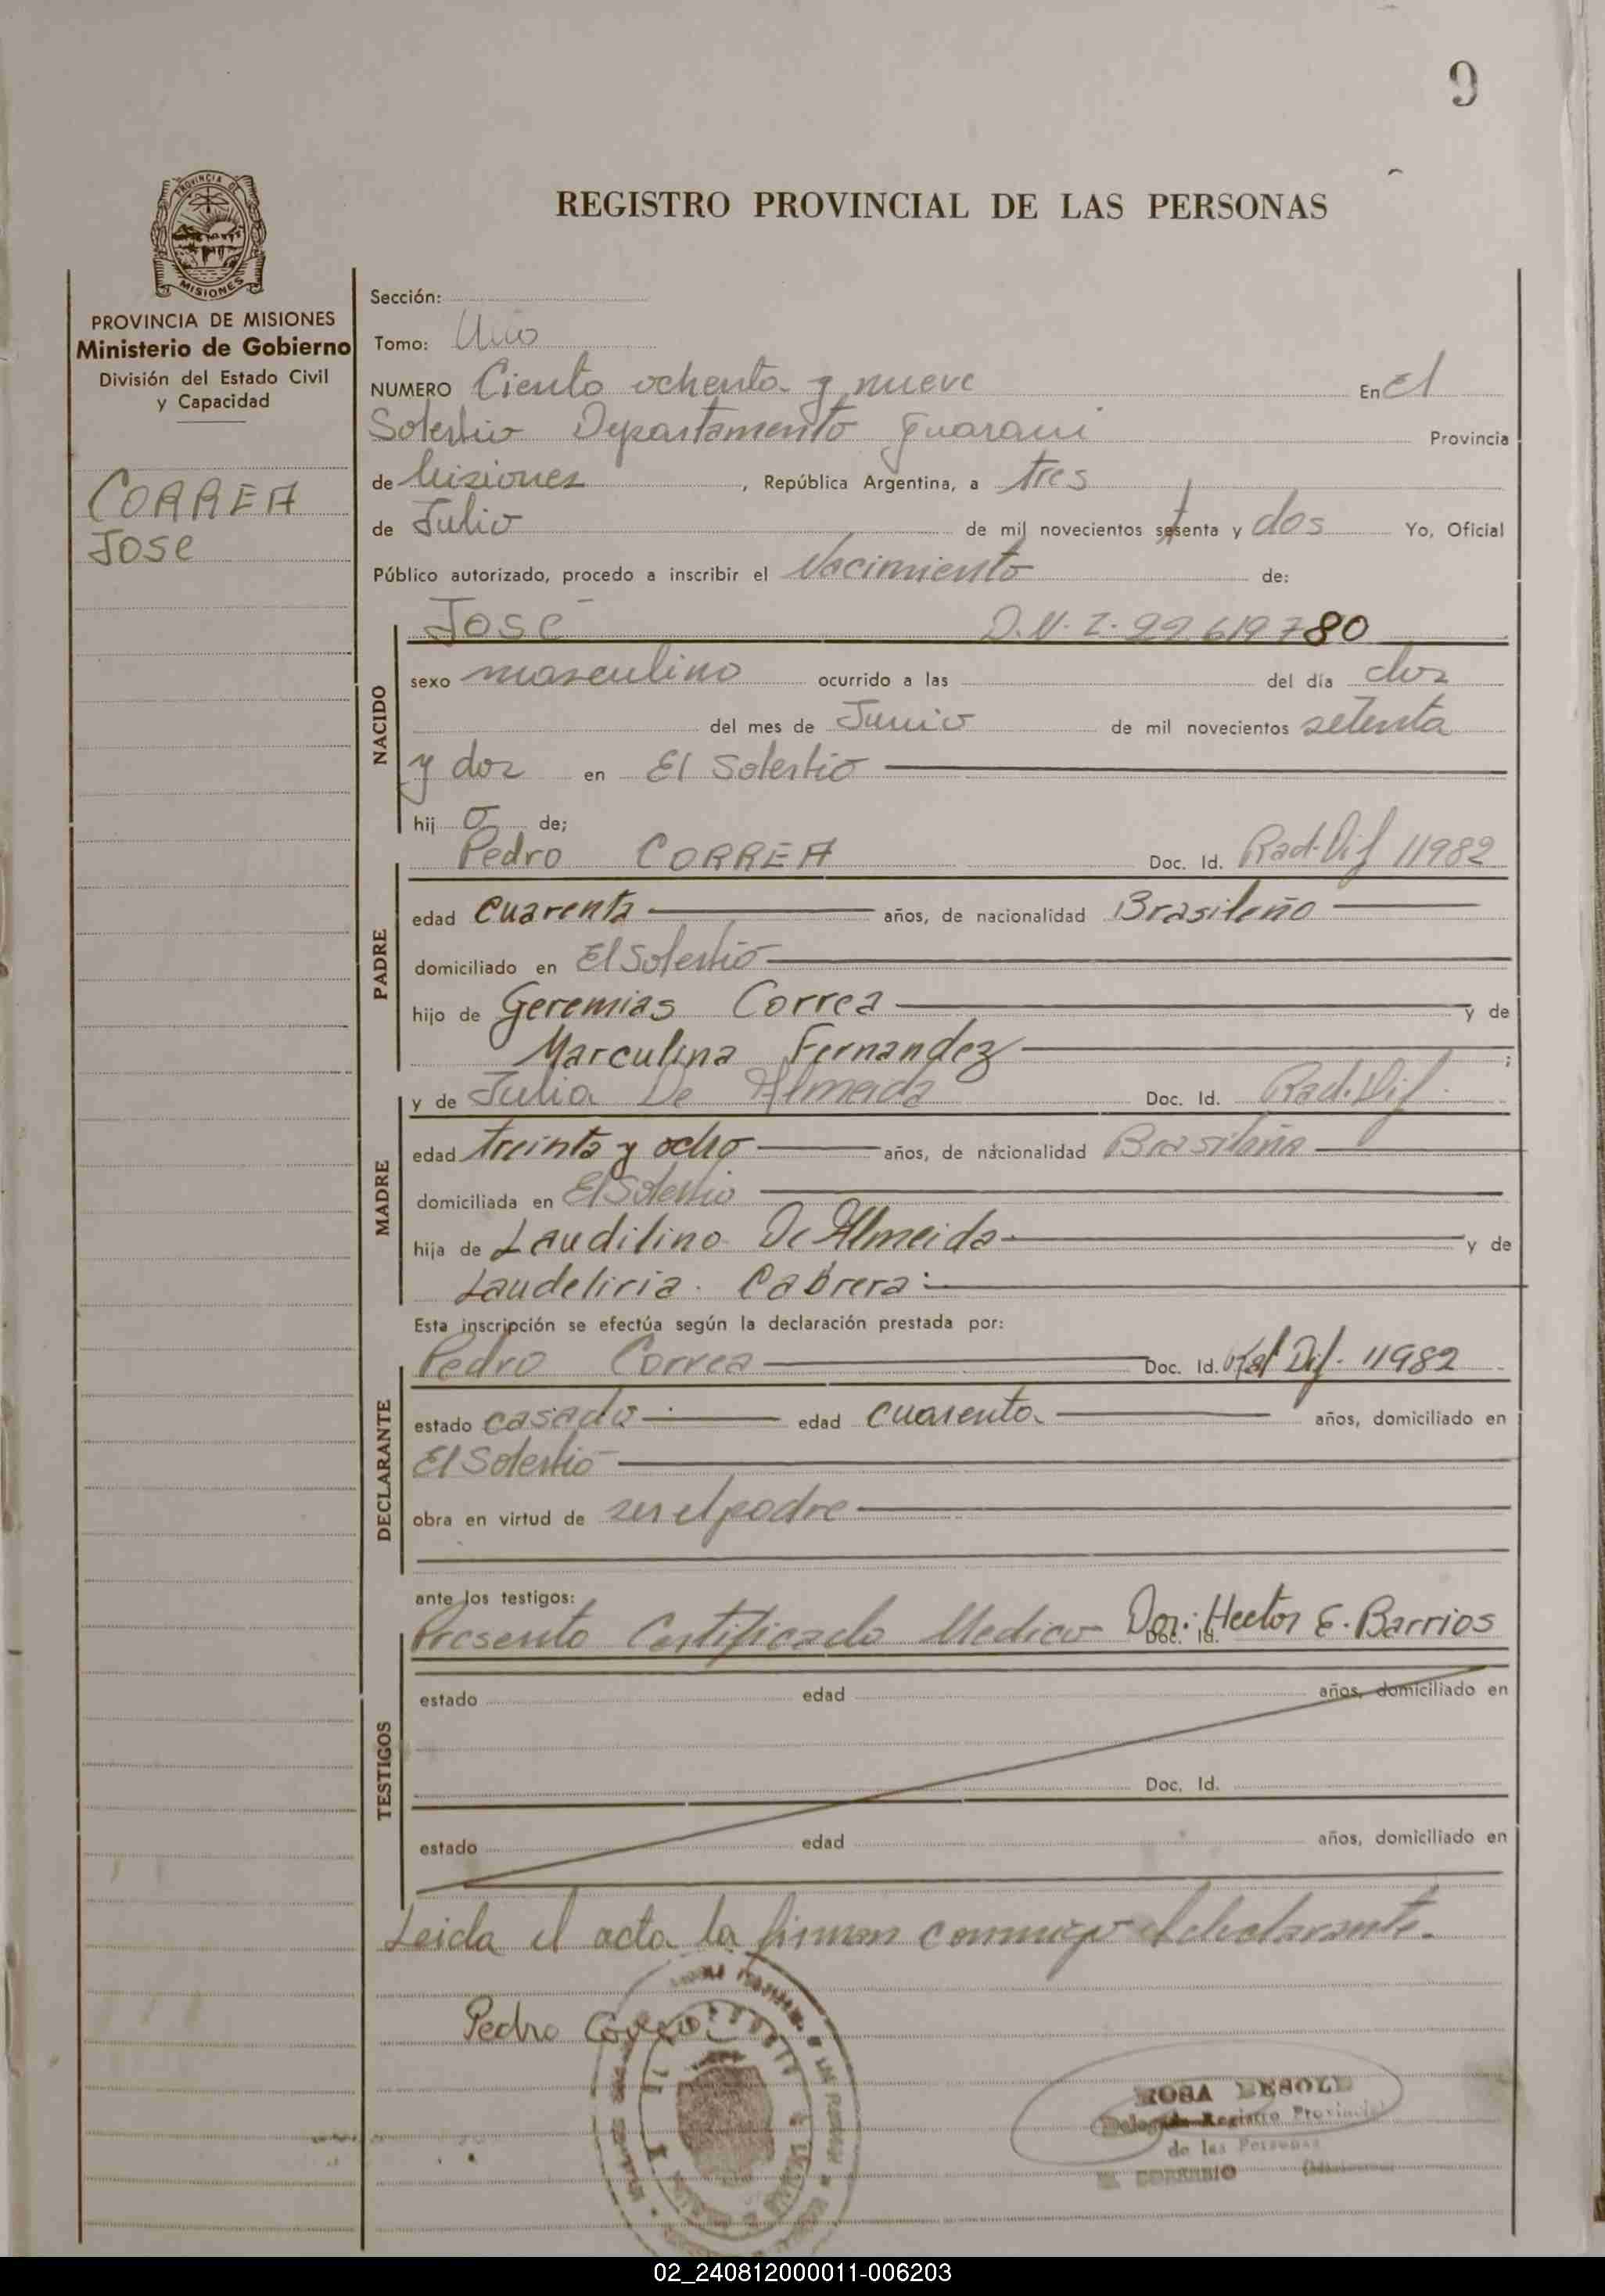 9
PROVINCIA DE
MISIONES
REGISTRO PROVINCIAL DE LAS PERSONAS
PROVINCIA DE MISIONES
Ministerio de Gobierno
División del Estado Civil
y Capacidad
CORREA
Jose
Sección:
Tomo: Uno
NUMERO Ciento ochenta y nueve En El
Soberbio Departamento Guarani Provincia
de Misiones , República Argentina, a tres
de Julio de mil novecientos setenta y dos Yo, Oficial
Público autorizado, procedo a inscribir el Nacimiento de:
NACIDO
José D.N.I. 22.619.780
sexo masculino ocurrido a las del día dos
del mes de Junio de mil novecientos setenta
y dos en El Soberbio
hij o de;
PADRE
Pedro CORREA Doc. Id. Rad. Dif 11982
edad cuarenta años, de nacionalidad Brasileño
domiciliado en El Soberbio
hijo de Geremias Correa y de
Marculina Fernandez ;
MADRE
y de Julia De Almeida Doc. Id. Rad. Dif.
edad treinta y ocho años, de nacionalidad Brasileña
domiciliada en El Soberbio
hija de Laudilino De Almeida y de
Laudeliria. Cabrera:
Esta inscripción se efectúa según la declaración prestada por:
DECLARANTE
Pedro Correa Doc. Id. Rad Dif. 11982
estado casado edad cuarenta años, domiciliado en
El Soberbio
obra en virtud de ser el padre
ante los testigos:
TESTIGOS
Presento Certificado Medico Dor: Hector E. Barrios
Doc. Id.
estado edad años, domiciliado en
Doc. Id.
estado edad años, domiciliado en
Leida el acta la firman conmigo el declarante.
Pedro Correa
ROSA
Registro Provincial
de las Personas
02_240812000011-006203